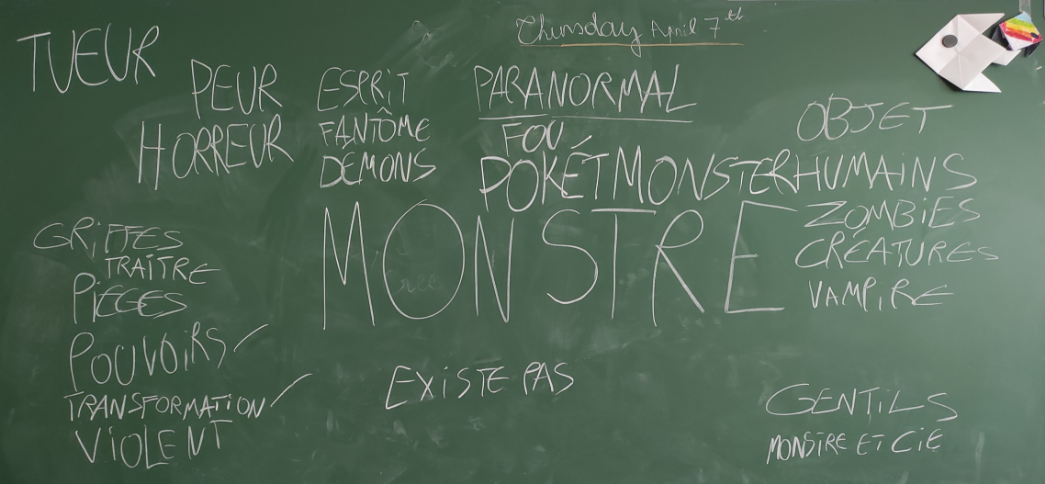 Thursday April 7th
TUEUR
PEUR
HORREUR
ESPRIT
FANTÔME
DÉMONS
PARANORMAL
FOU
POKÉTMONSTER
OBJET
HUMAINS
ZOMBIES
CRÉATURES
VAMPIRE
MONSTRE
GRIFFES
TRAÎTRE
PIÈGES
POUVOIRS
TRANSFORMATION
VIOLENT
EXISTE PAS
GENTILS
MONSTRE ET CIE